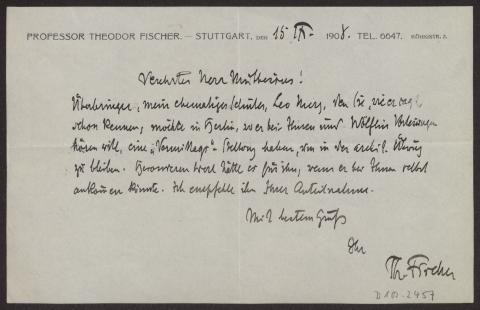 PROFESSOR THEODOR FISCHER. — STUTTGART, DEN 15 IX. 1908. TEL. 6647.
Verehrter Herr Muthesius!
Überbringer, mein ehemaliger Schüler, Leo, den Sie, wie er sagt,
schon kennen, möchte in Berlin, wo er bei Ihnen und Wölfflin Vorlesungen
hören will, eine „Vormittags"-Stellung haben, um in der archit. Übung
zu bleiben. Besonderen Wert hätte es für ihn, wenn er bei Ihnen selbst
ankommen könnte. Ich empfehle ihn Ihrer Anteilnahme.
Mit bestem Gruß
Ihr
Th. Fischer
D 102-2457